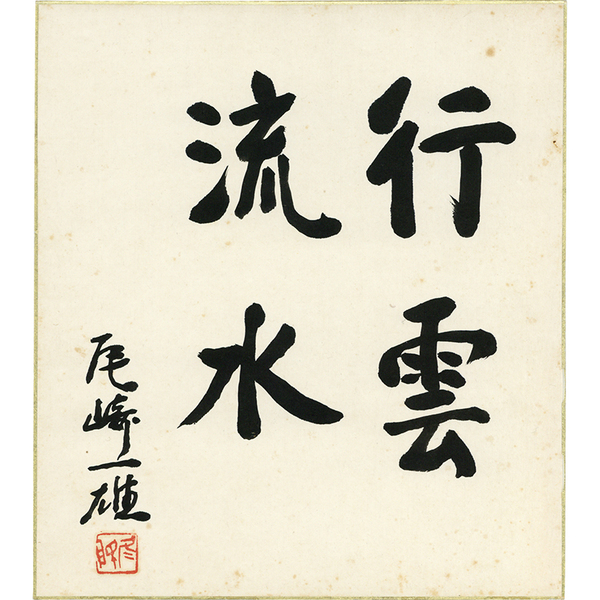 行雲
流水
尾崎一雄